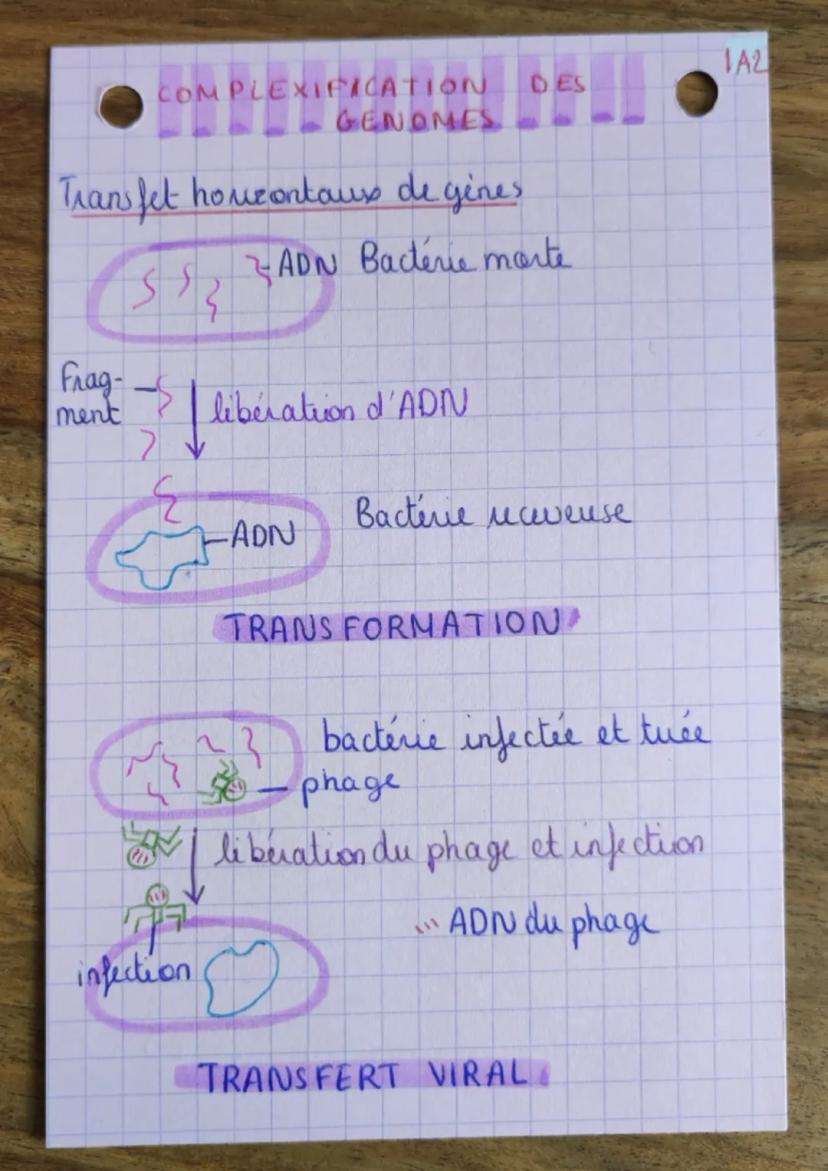 1A2
COMPLEXIFICATION DES
GENOMES
Transfet horizontaux de gènes
ADN Bactérie morte
Frag-
ment
libération d'ADN
ADN
Bactérie receveuse
TRANSFORMATION
bactérie infectée et tuée
phage
libération du phage et infection
ADN du phage
infection
TRANSFERT VIRAL